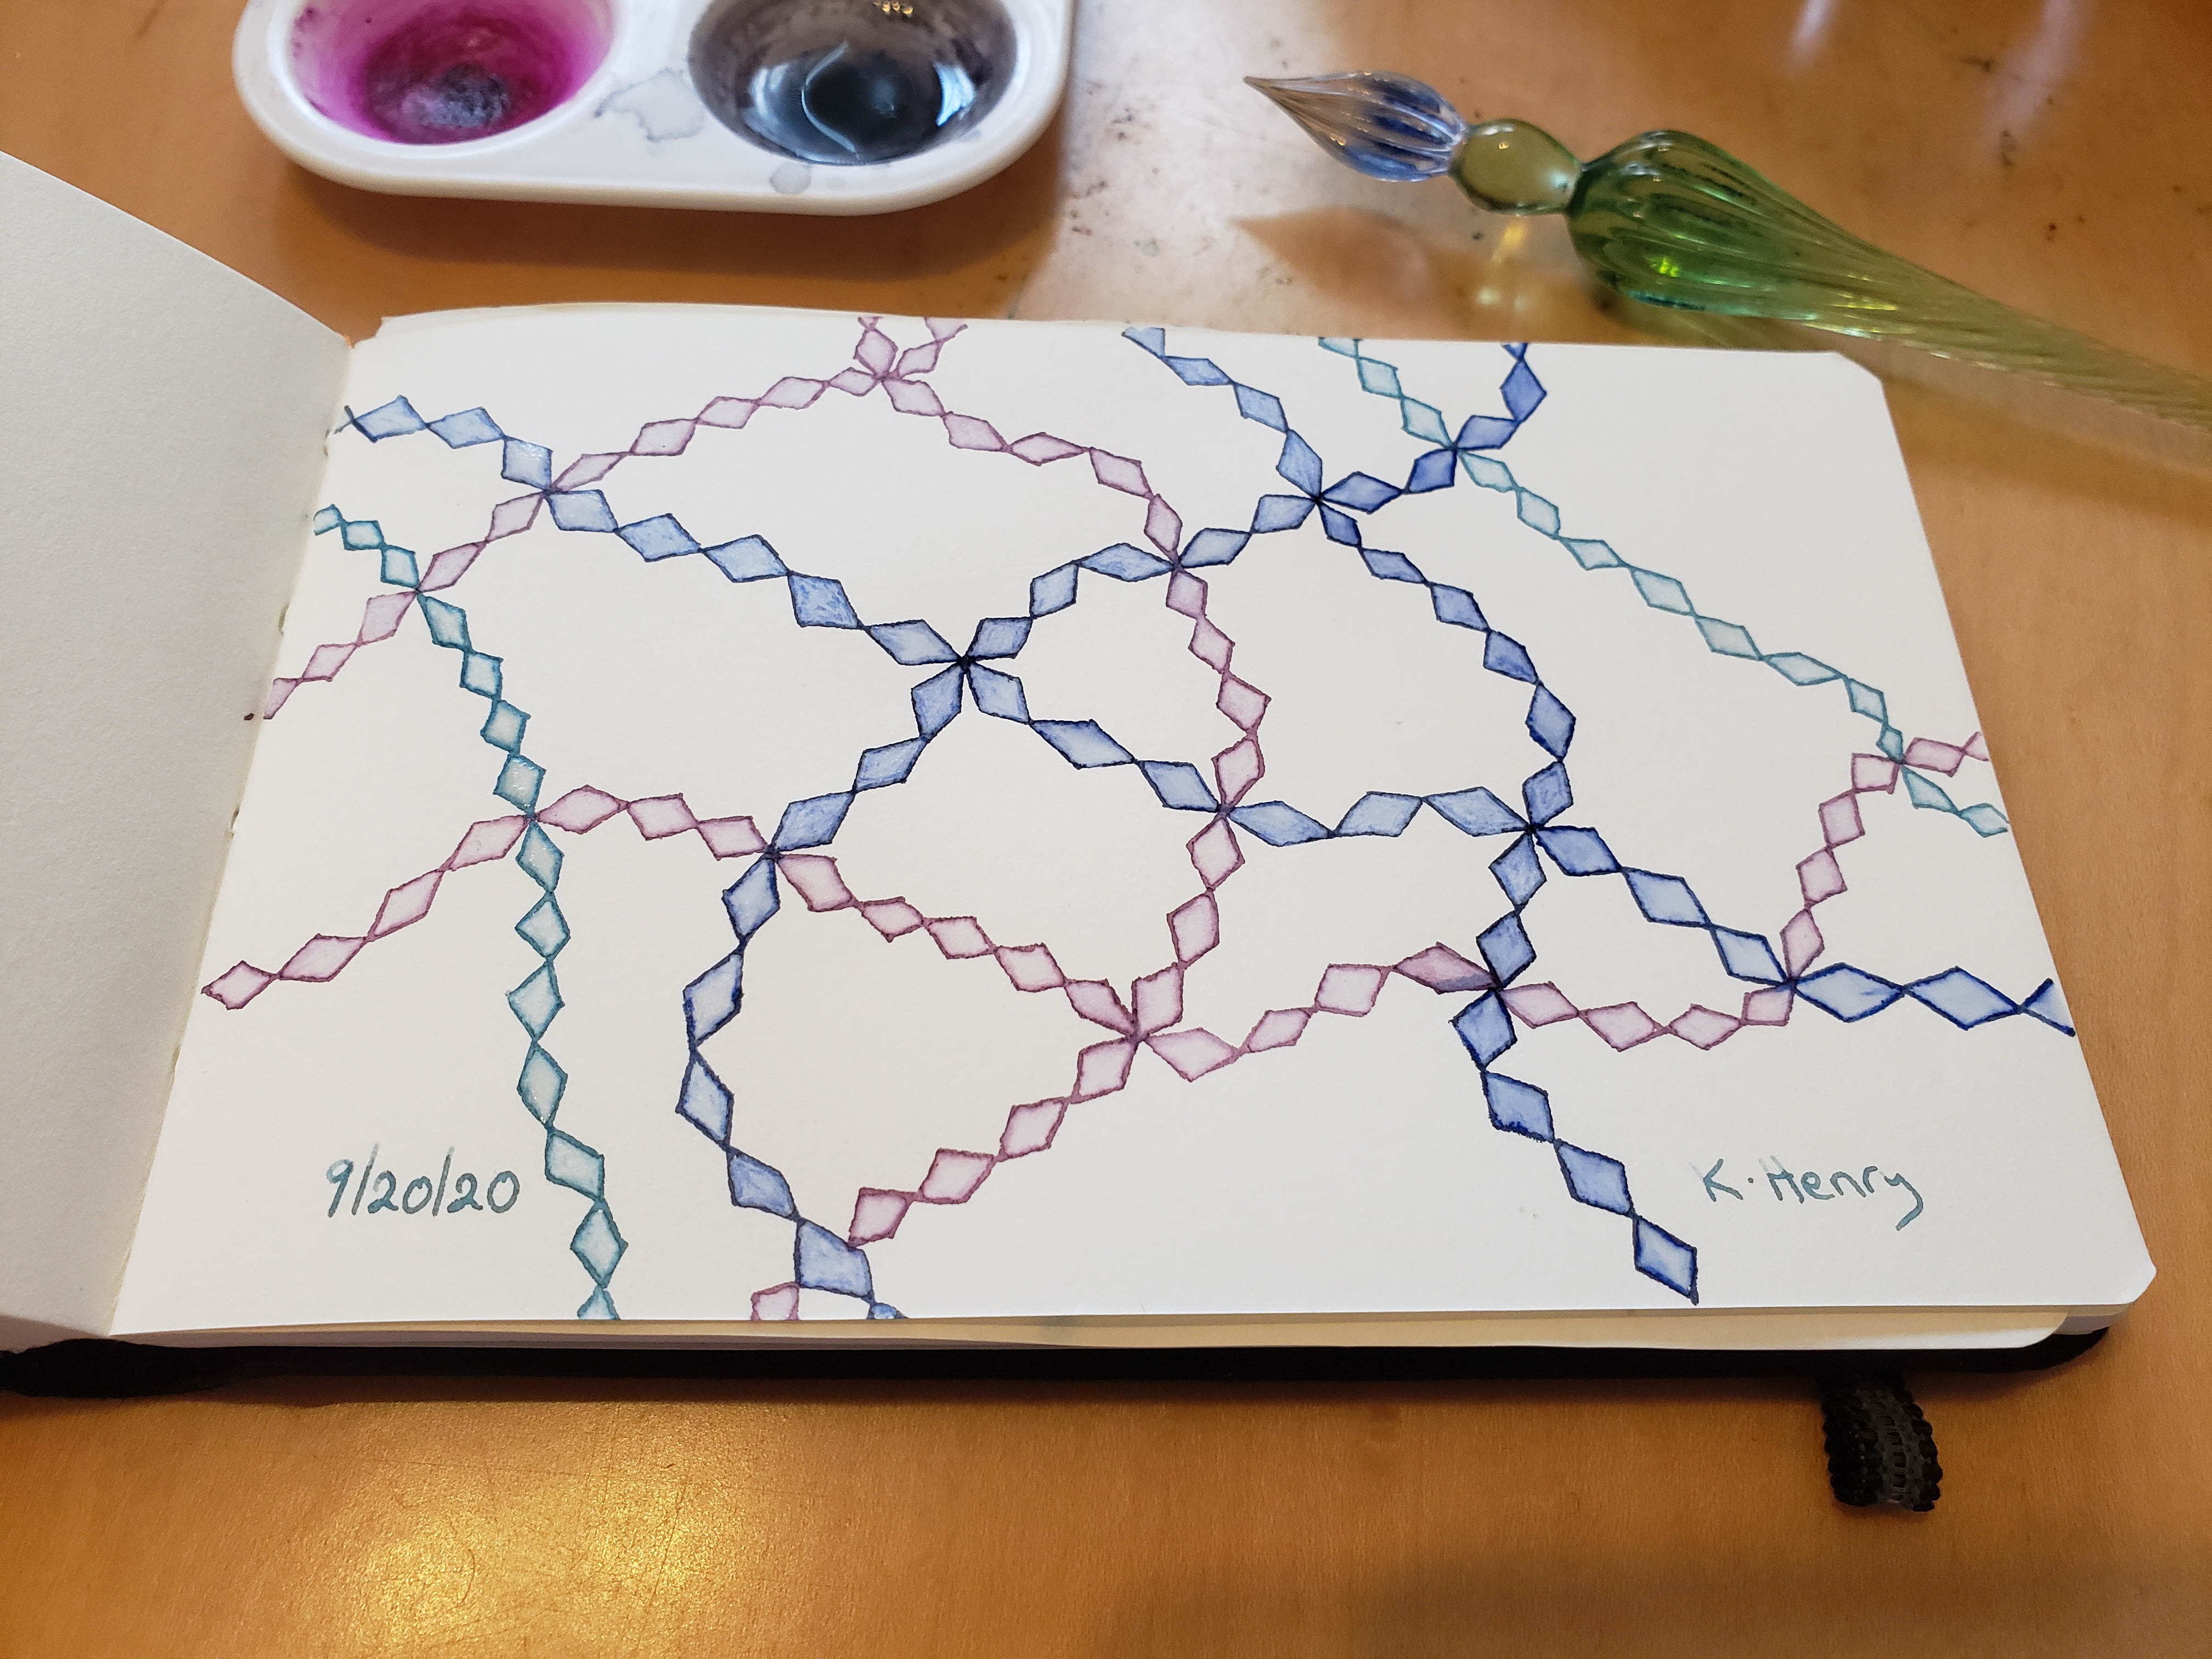 9/20/20
K. Henry